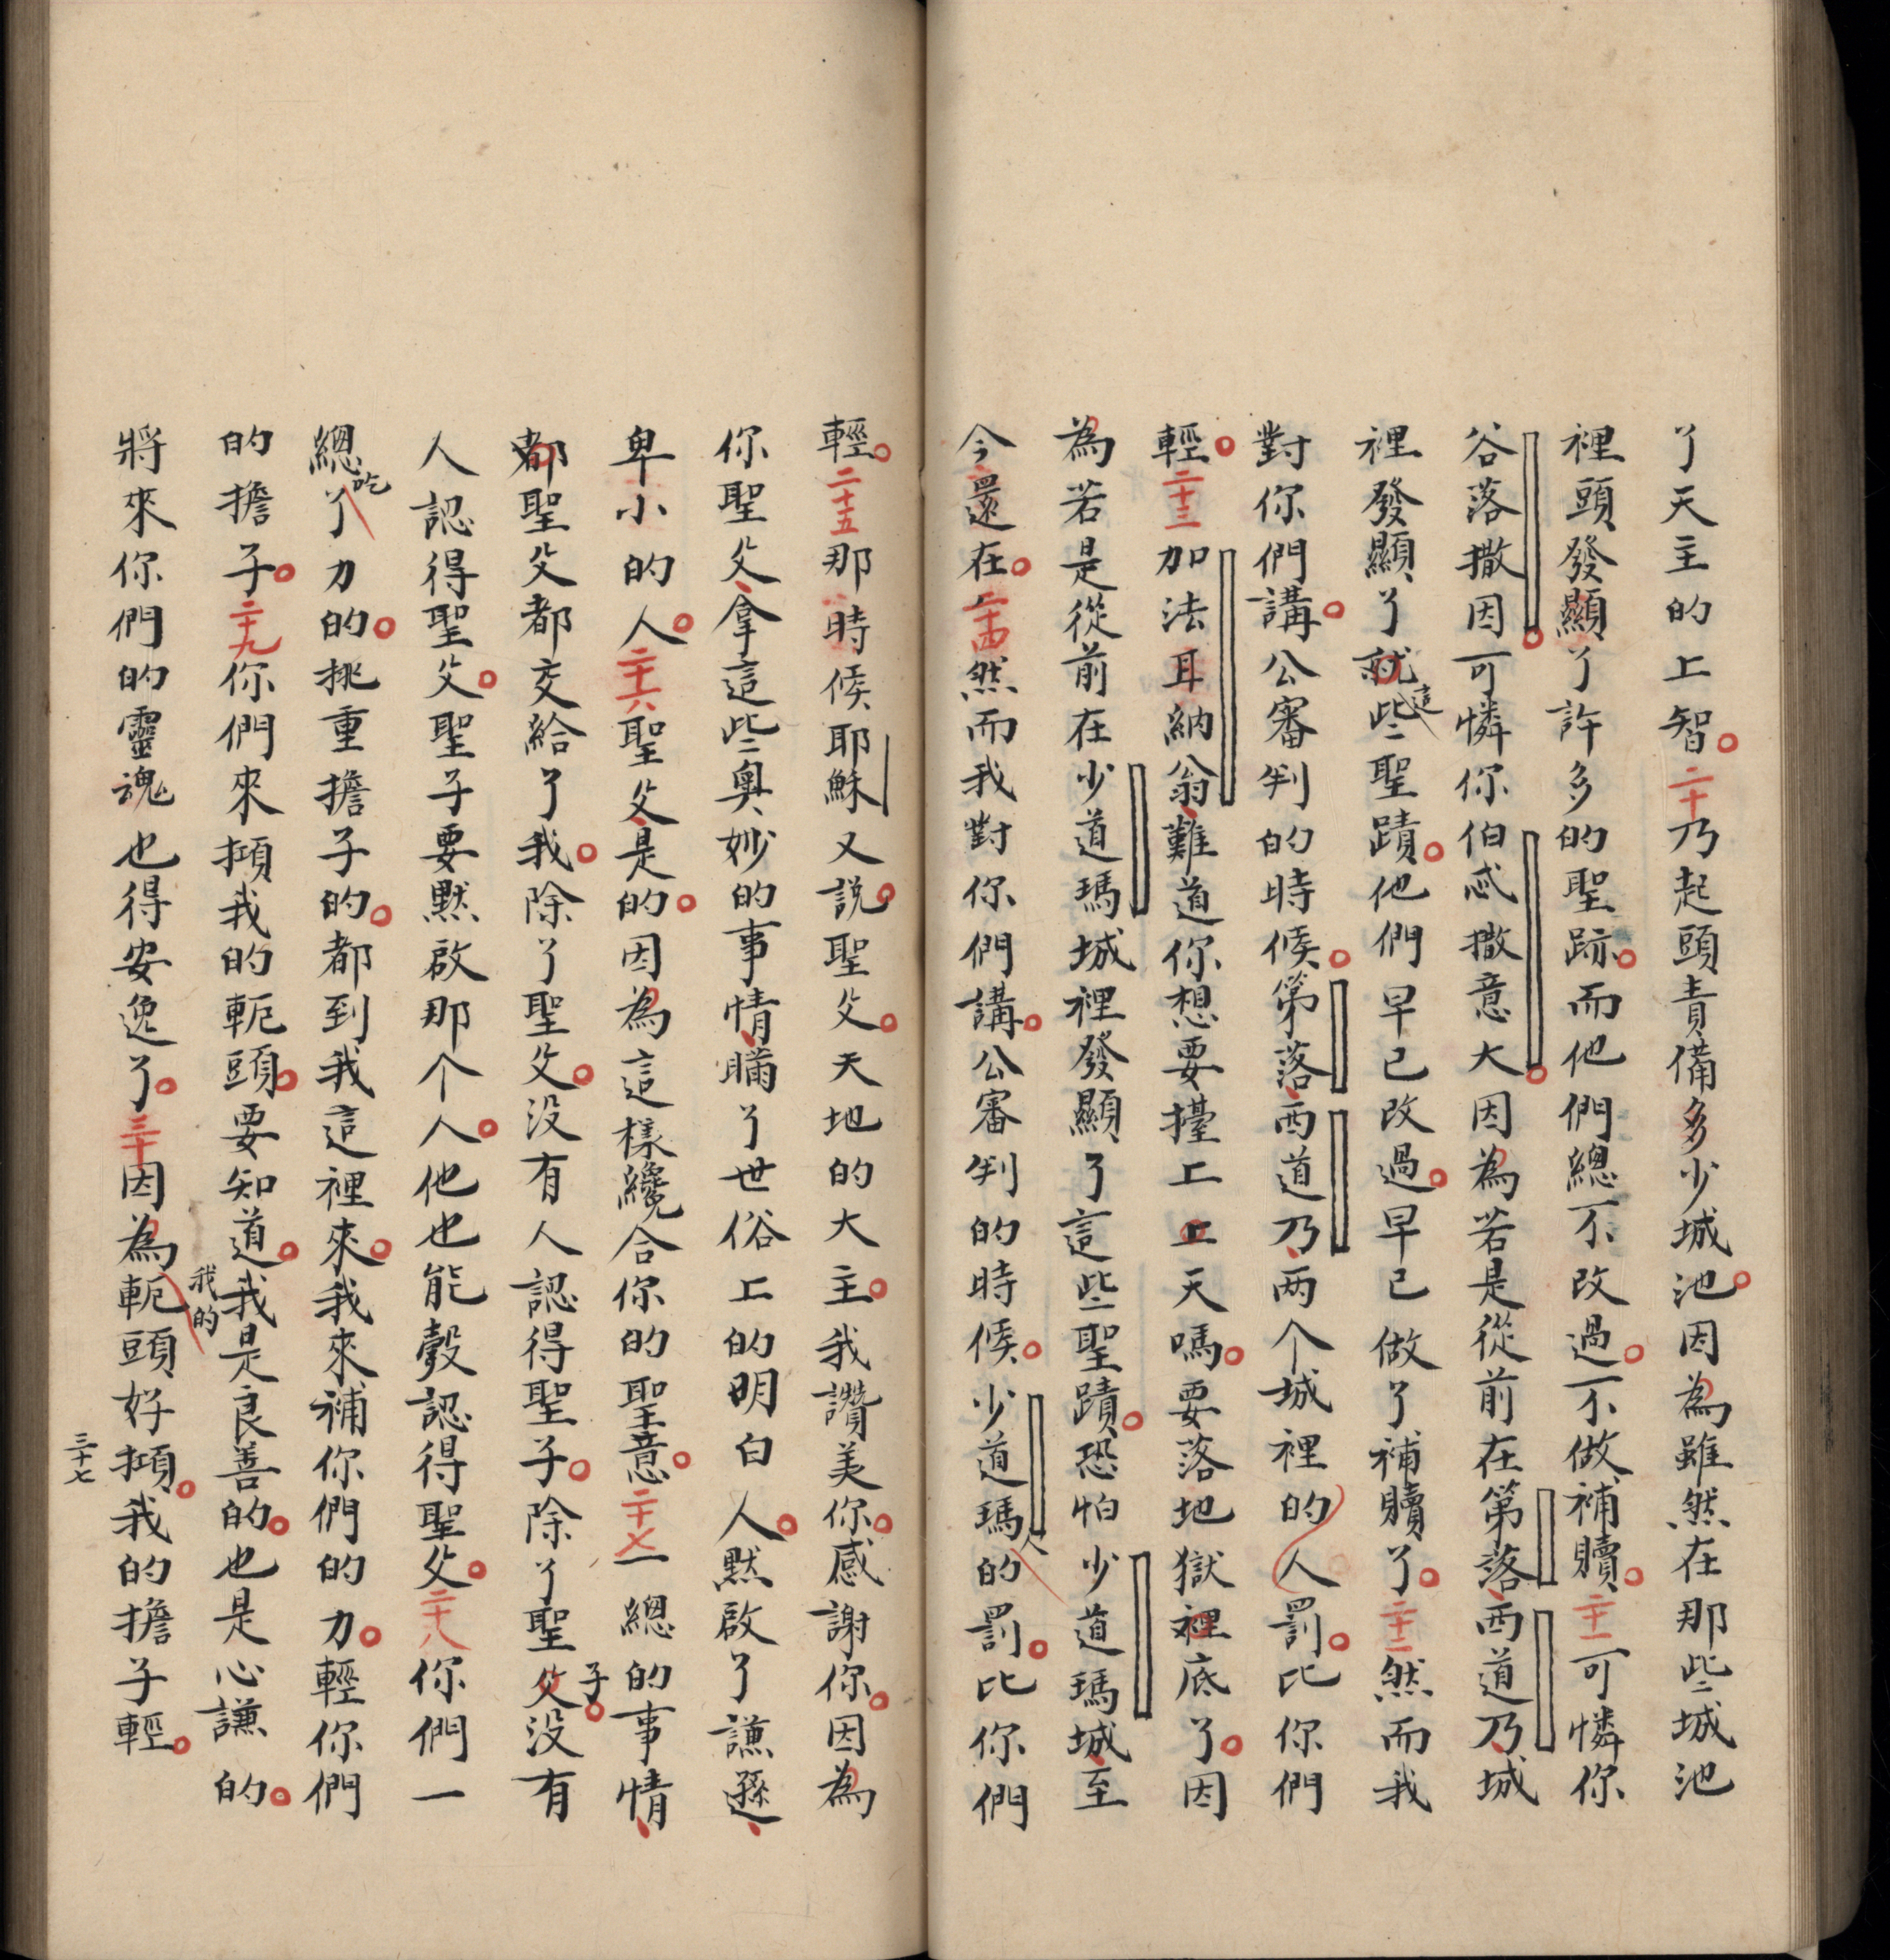 了天主的上智。二十乃起頭責備多少城池。因為雖然在那些城池
裡頭發顯了許多的聖跡。而他們總不改過。不做補贖。二十一可憐你
谷落撒因。可憐你伯忒撒意大。因為若是從前在第落、西道乃、城
裡發顯了就這些聖蹟。他們早已改過。早已做了補贖了。二十二然而我
對你們講。公審判的時候。第落、西道乃、两个城裡的人罰。比你們
輕。二十三加法耳納翁、難道你想要擡上上天嗎。要落地獄裡底了。因
為若是從前在少道瑪城裡發顯了這些聖蹟。恐怕少道瑪城、至
今還在。二十四然而我對你們講。公審判的時候。少道瑪人的罰。比你們
輕。二十五那時候耶穌又説。聖父。天地的大主。我讚美你。感謝你。因為
你聖父、拿這些奥妙的事情、瞞了世俗上的明白人。默啟了謙遜、
卑小的人。二十六聖父、是的。因為這樣纔合你的聖意。二十七一總的事情、
都聖父都交給了我。除了聖父。没有人認得聖子。除了聖父子。没有
人認得聖父。聖子要默啟那个人。他也能彀認得聖父。二十八你們一
總吃了力的。挑重擔子的。都到我這裡來。我來補你們的力。輕你們
的擔子。二十九你們來㧾我的軛頭。要知道。我是良善的。也是心謙的。
將來你們的靈魂也得安逸了。三十因為我的軛頭好㧾。我的擔子輕。
三十七